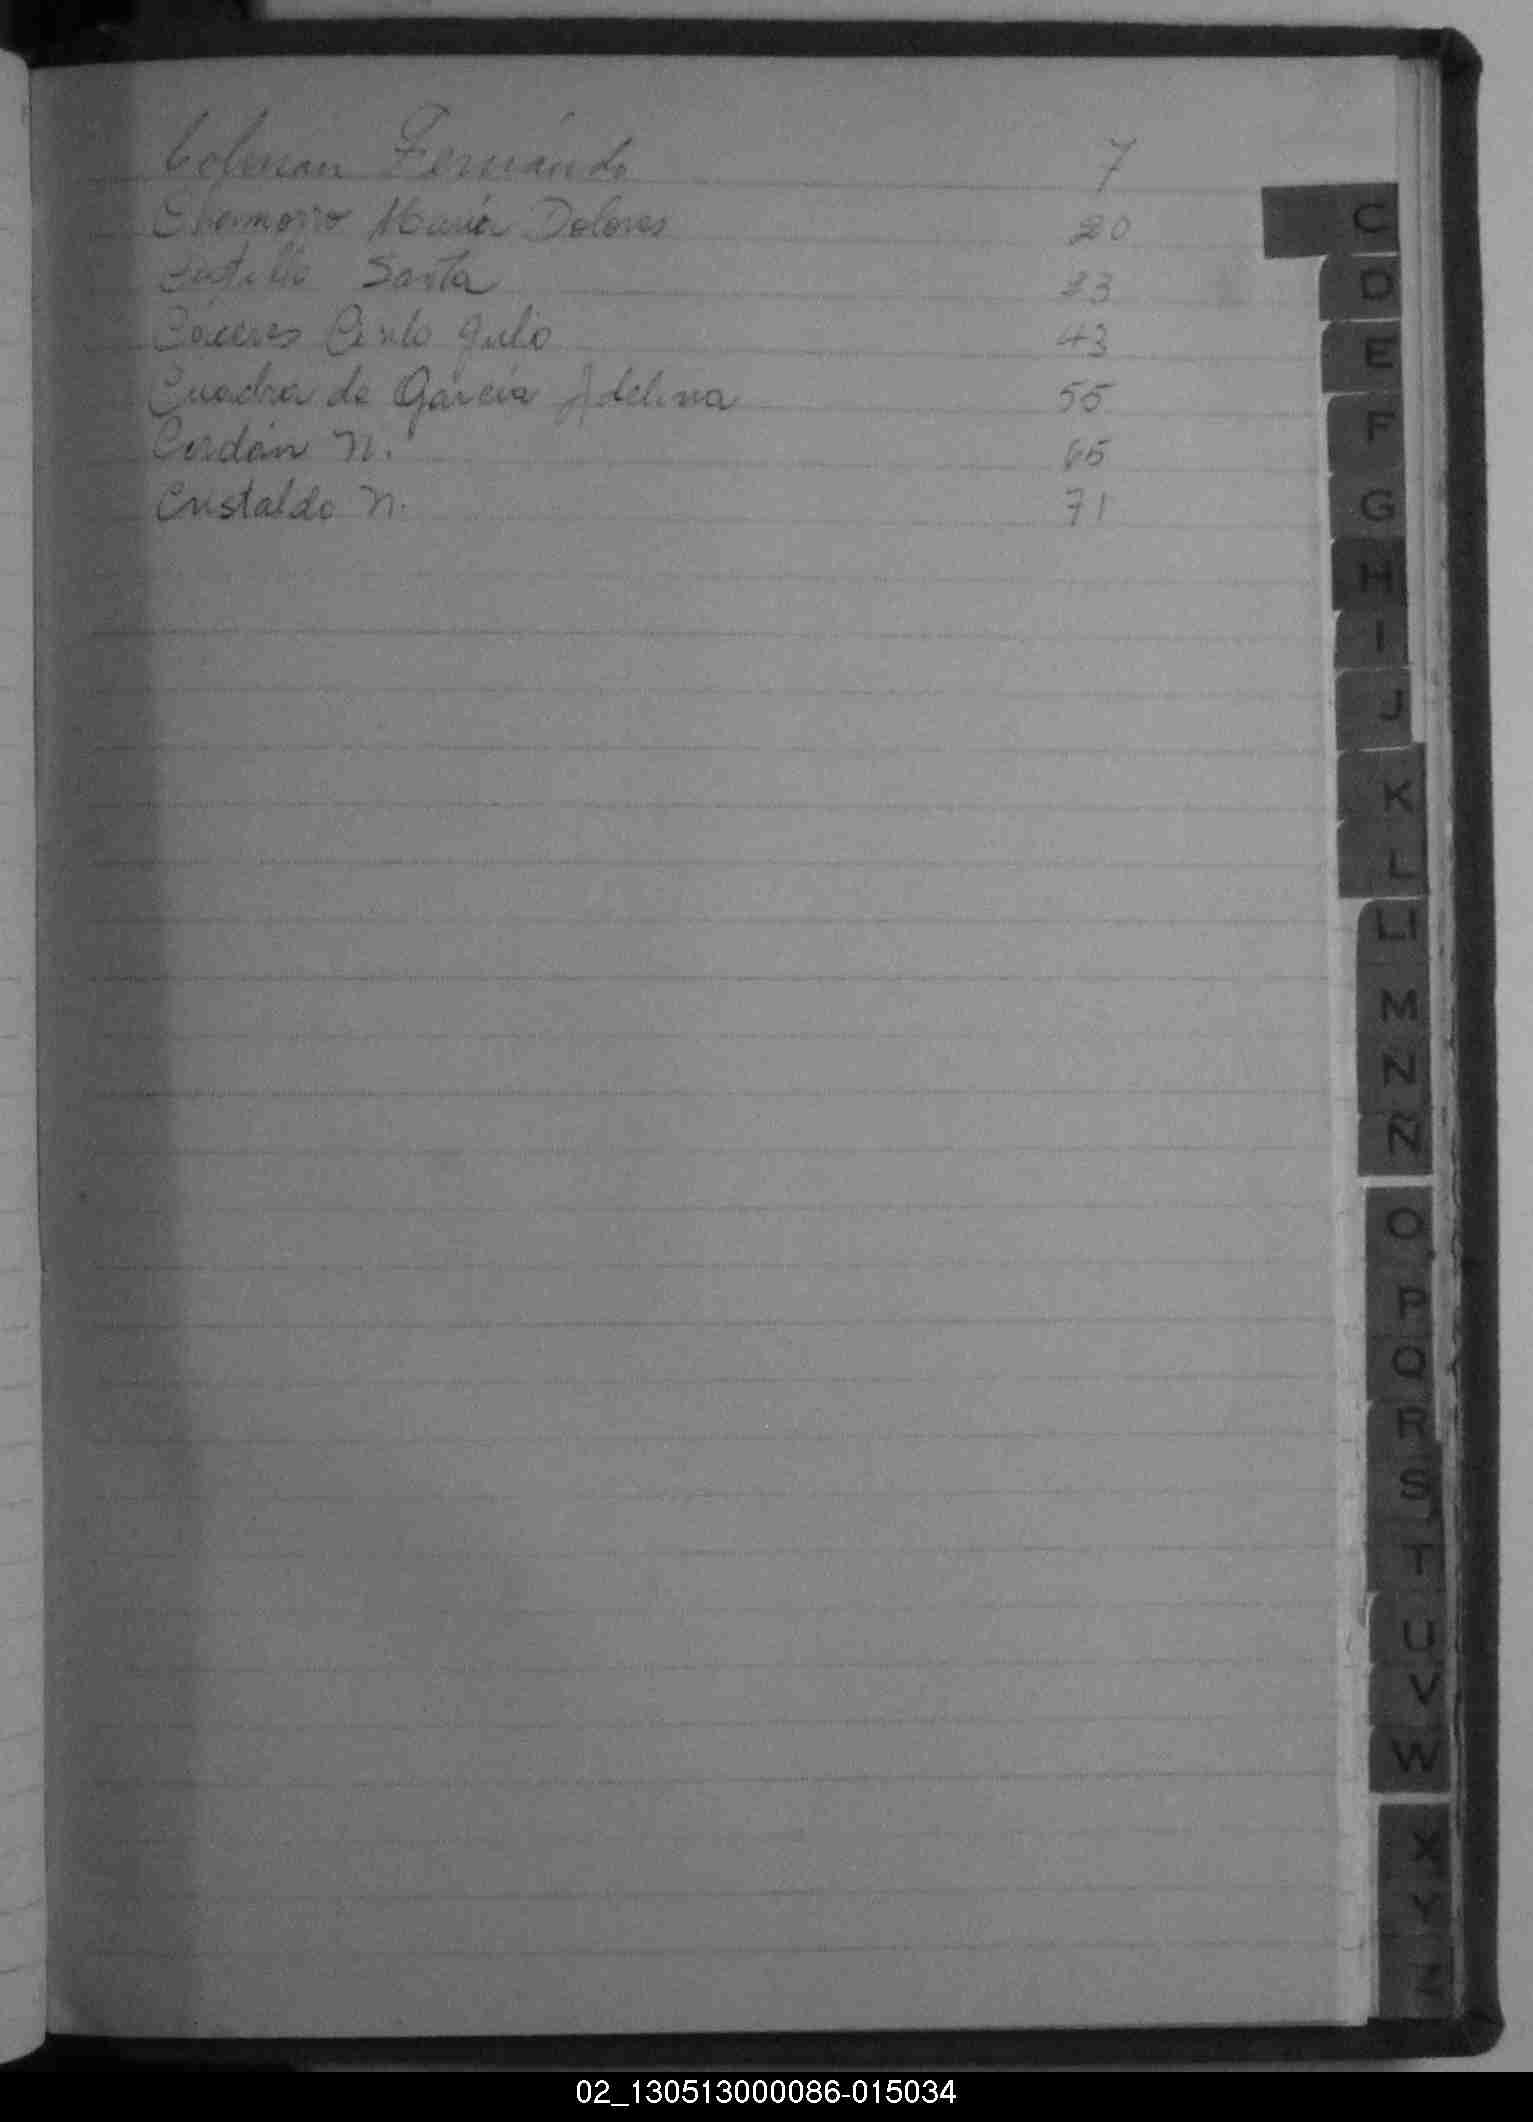 Colman Fernándo 7
Chamorro María Dolores 20
Santa 23
Cáceres Cirilo Julio 43
Cuadra de García Adelina 55
Cerdán N. 65
Cristaldo N. 71
C
D
E
F
G
H
I
J
K
L
Ll
M
N
Ñ
O
P
Q
R
S
T
U
V
W
X
Y
Z
02_130513000086-015034